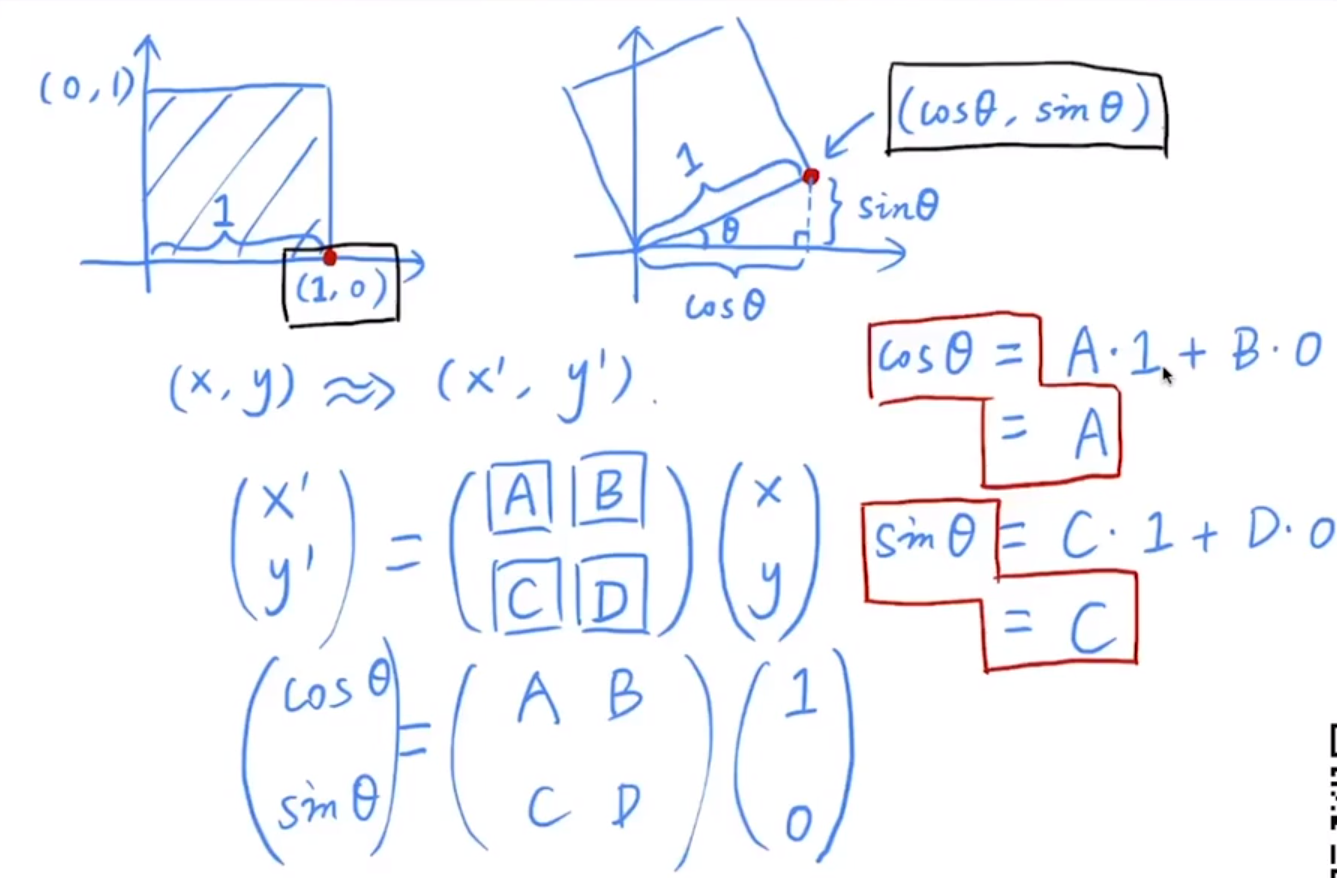 (0,1)
1
(1,0)
1
θ
sinθ
cosθ
(cosθ, sinθ)
(x, y) ⇝ (x', y').
(x' y') = (A B C D) (x y)
(cosθ sinθ) = (A B C D) (1 0)
cosθ = A·1 + B·0
= A
sinθ = C·1 + D·0
= C